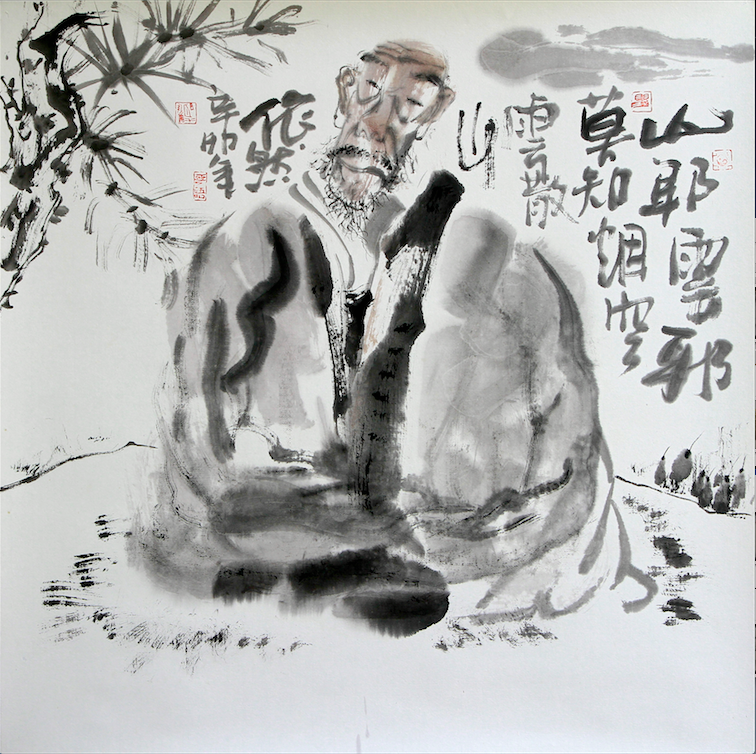 山耶雲邪
莫知烟空
雲散
山
依然
辛卯年